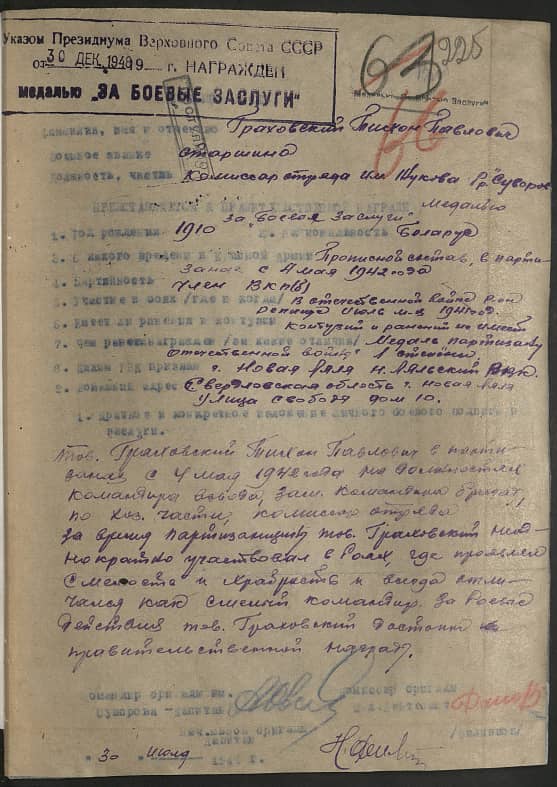 Указом Президиума Верховного Совета СССР
от 30 ДЕК 1948 9 г. НАГРАЖДЕН
медалью „ЗА БОЕВЫЕ ЗАСЛУГИ"
63 225
66
Фамилия, имя и отчество Граховский Тихон Павлович
старшина
Должность, часть Комиссар отряда им Жукова бр. Суворов
Медалью
За "Боевая Заслуги"
1. Год рождения 1910 Беларус
3. С какого времени в Красной Армии Приписной состав, в парти-
занах с 4 мая 1942 года
4. Партийность член ВКП(б)
5. Участие в боях /где и когда/ в отечественной войне
июль м-ц 1941 год.
6. Имеет ли ранения и контузии контузий и ранений не имеет
7. Чем ранее награжден /за какие отличия/ Медаль партизану
отечественной войны 1 степени
8. Каким РВК призван г. Новая Ляля Н. Лялский Рвк.
9. Домашний адрес Свердловская область г. Новая Ляля
улица свобода дом 10.
1. Краткое и конкретное изложение личного боевого подвига и
заслуги.
тов. Граховский Тихон Павлович в парти-
занах с 4 мая 1942 года на должностях
командира взвода, зам. командира бригады
по хоз. части, комиссар отряда
За время партизанщины тов. Граховский неод-
нократно участвовал в боях, где проявлял
смелость и храбрость и всегда отли-
чался как смелый командир. За боевые
действия тов. Граховский достоин
правительственной награды.
Командир бригады им. Комиссар бригады
Суворова - Капитан
Нач. штаба бригады
Капитан
"30 июля 194 г.